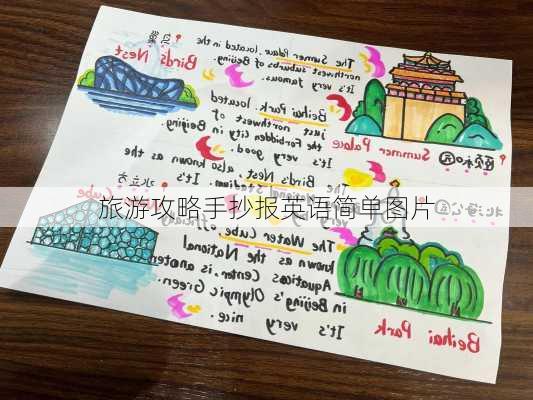 鸟巢
Birds Nest
The Summer Palace, located in the
northwest suburbs of Beijing.
It's very famous.
颐和园
Summer Palace
Beihai Park. located
just northwest of
the Forbidden city in Beijing.
It's very good.
The Birds Nest. also known as the
National Stadium. It's
旅游攻略手抄报英语简单图片
水立方
Cube
北海公园
Beihai Park
The Water Cube. also
known as the National
Aquatics Center, is another
in Beijing's Olympic Green.
It's very nice.